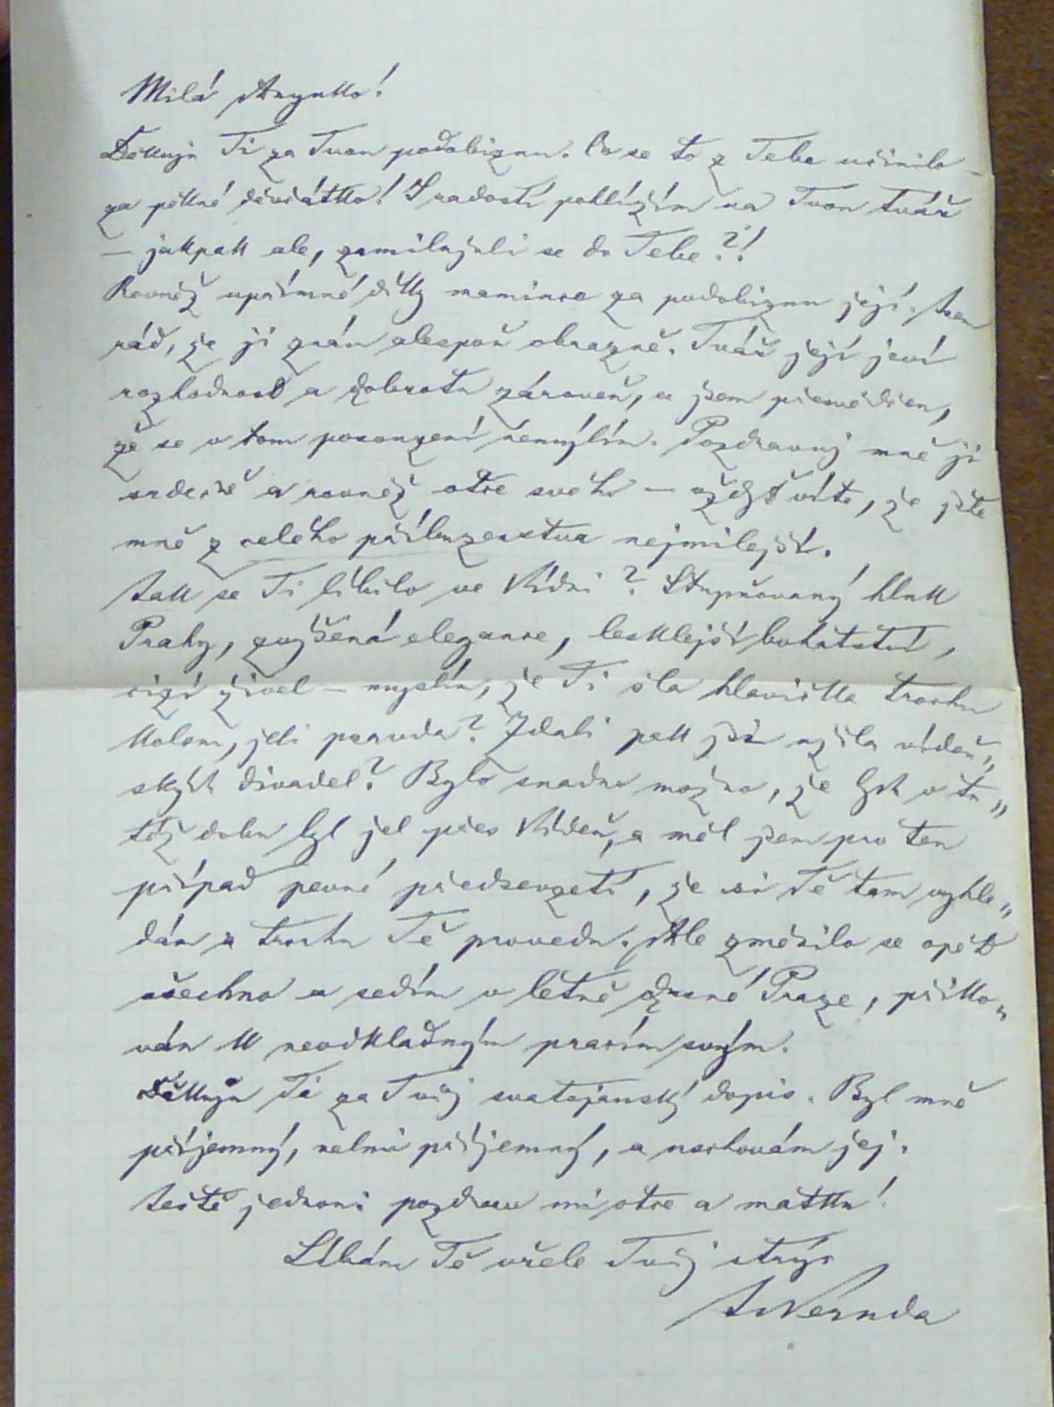 Milá Anynko!
Děkuju Ti za Tvou podobiznu. Co se to z Tebe učinilo
za pěkné děvčátko! S radostí pohlížím na Tvou tvář
– jakpak ale, zamilujuli se do Tebe?!
Rovněž upřímné díky mamince za podobiznu její. Jsem
rád, že ji znám alespoň obrazně. Tvář její jeví
rozhodnost a dobrotu zároveň, a jsem přesvědčen,
že se v tom posouzení nemýlím. Pozdravuj mně ji
srdečně a rovněž otce svého – vždyť víte, že jste
mně z celého příbuzenstva nejmilejší.
Jak se Ti líbilo ve Vídni? Stupňovaný hluk
Prahy, zvýšená elegance, lesklejší bohatství,
cizí živel – myslím, že Ti šla hlavička trochu
kolem, jeli pravda? Zdali pak jsi užila vídeň„
ských divadel? Bylo snadno možno, že bych v tu„
též dobu byl jel přes Vídeň, a měl jsem pro ten
případ pevné předsevzetí, že si Tě tam vyhle„
dám a trochu Tě provedu. Ale změnilo se opět
všechno a sedím v létně dusné Praze, přiko„
ván k neodkladným pracím svým.
Děkuju Ti za Tvůj svatojanský dopis. Byl mně
příjemný, velmi příjemný, a uschovám jej.
Ještě jednou pozdrav mi otce a matku!
Líbám Tě vřele Tvůj strýc
JNeruda